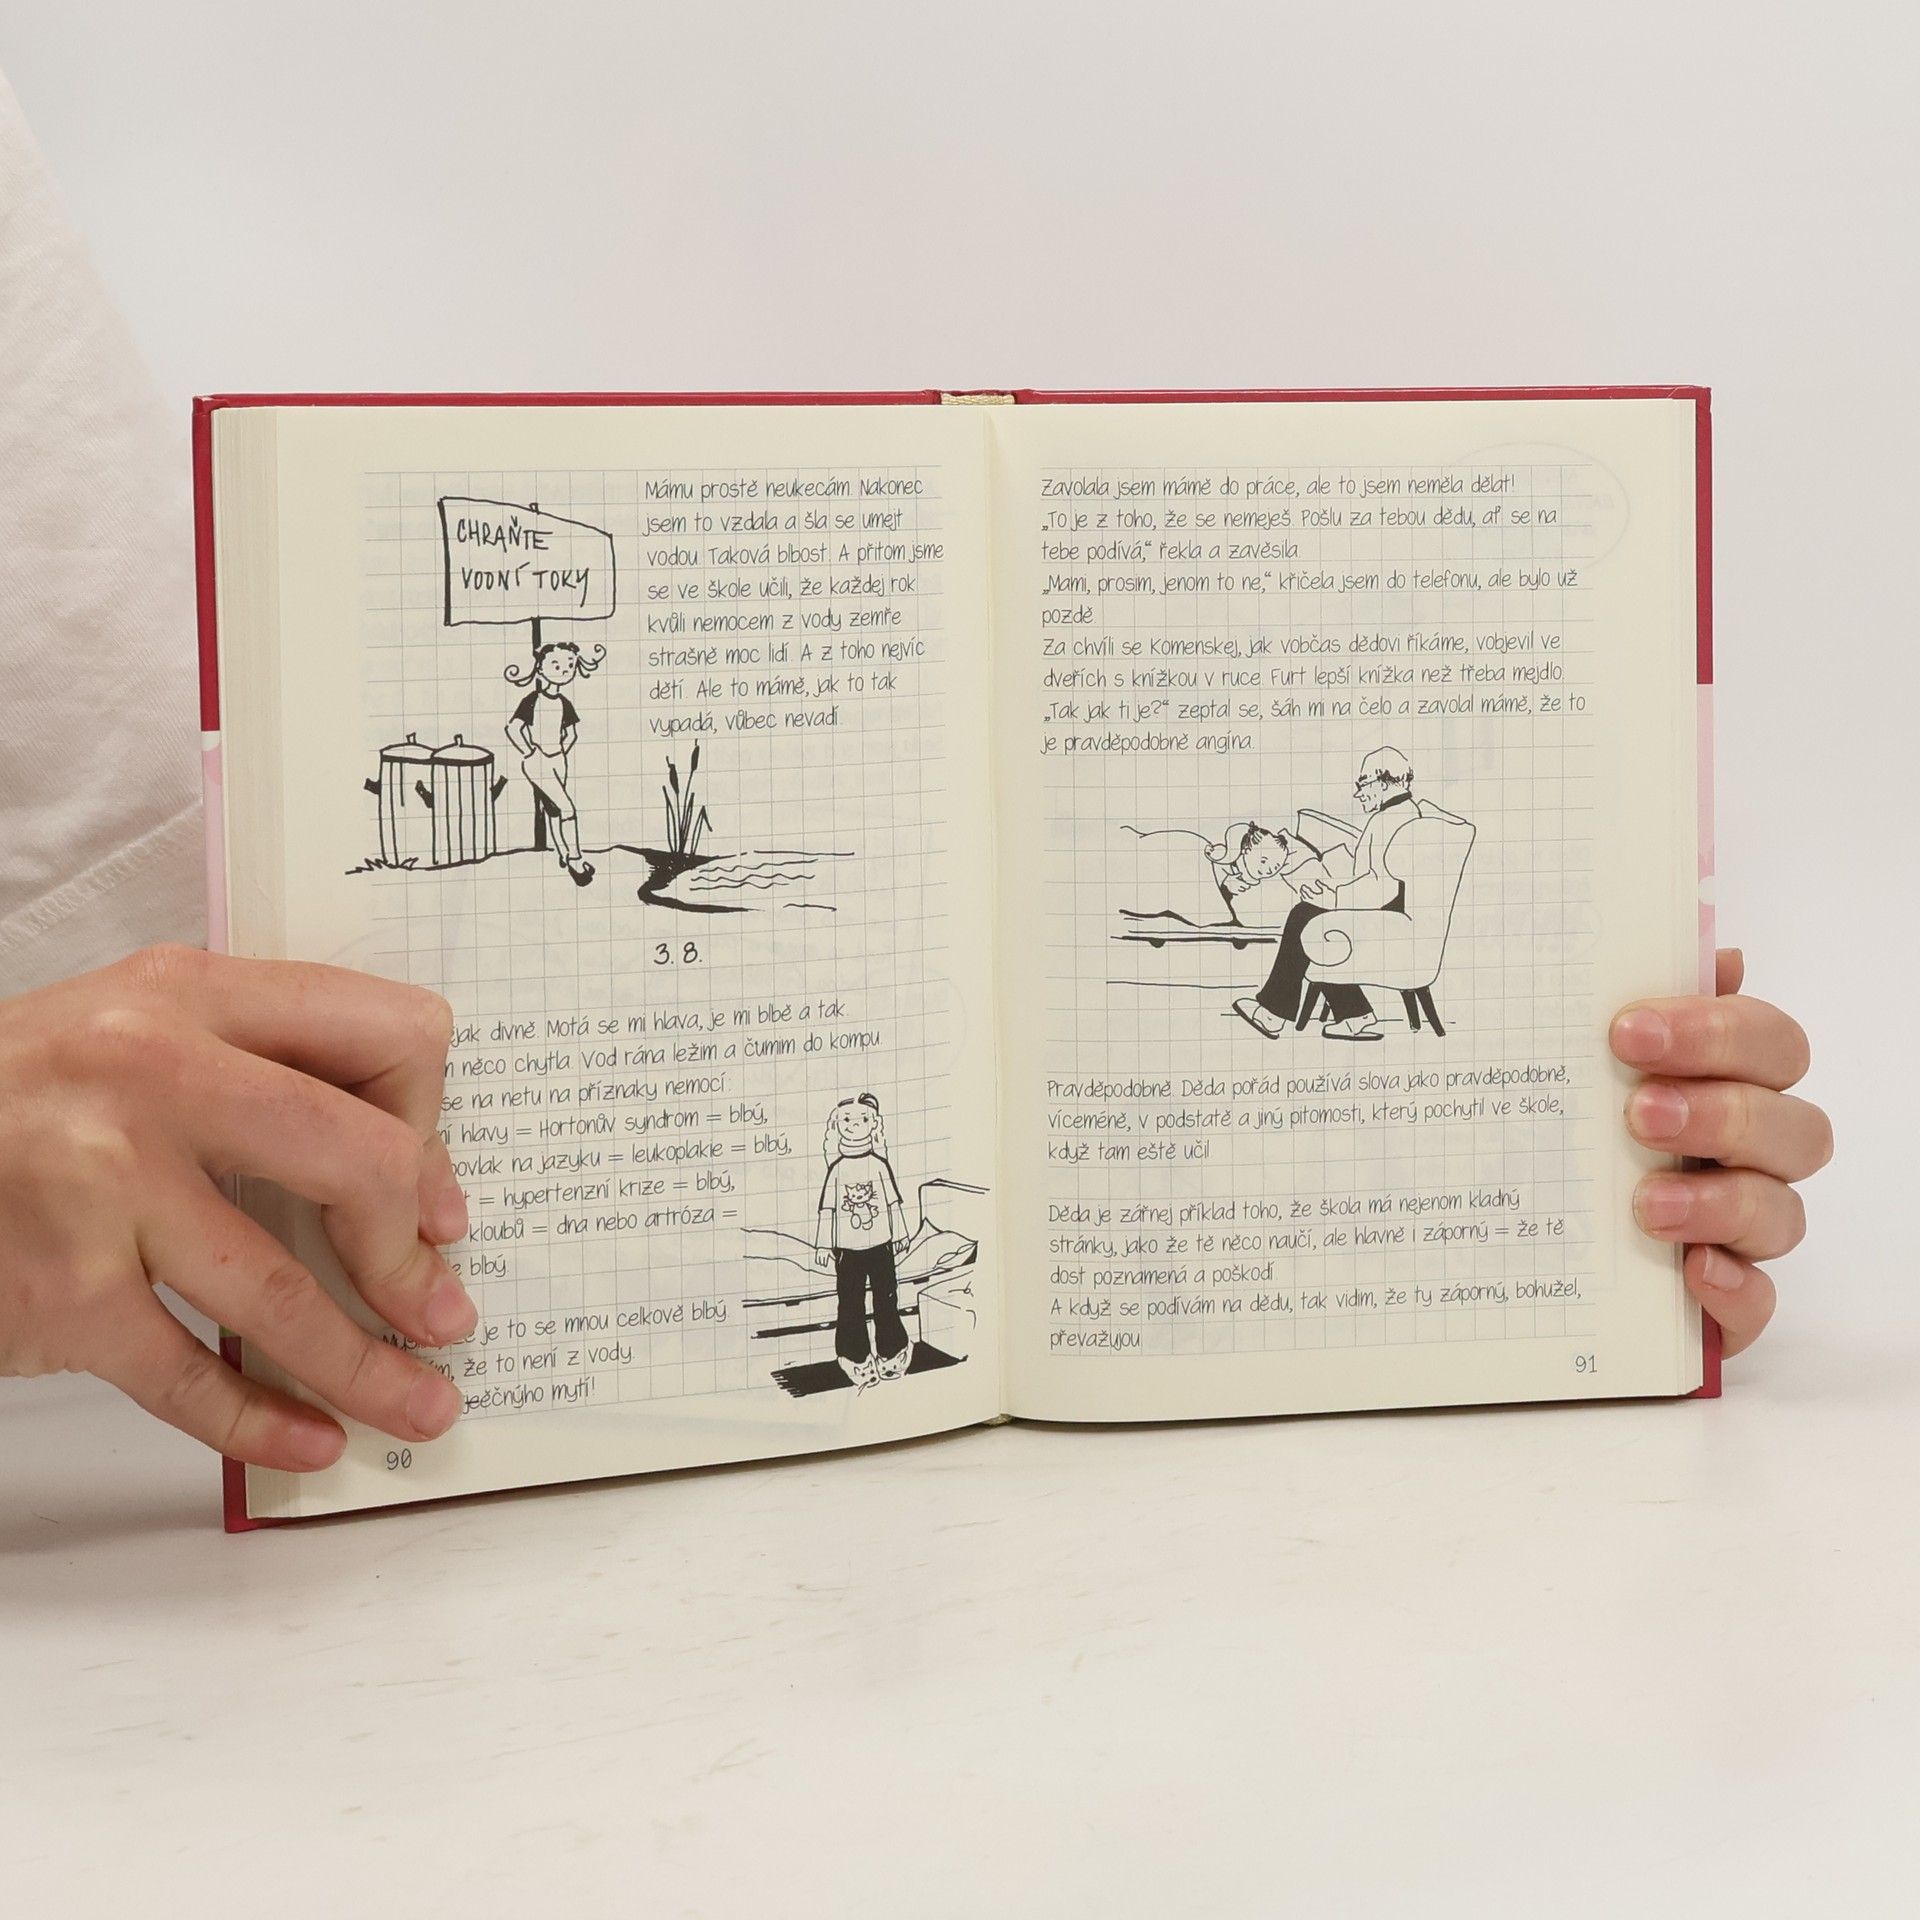 CHRAŇTE
VODNÍ TOKY
Mámu prostě neukecám. Nakonec
jsem to vzdala a šla se umejt
vodou. Taková blbost. A přitom jsme
se ve škole učili, že každej rok
kvůli nemocem z vody zemře
strašně moc lidí. A z toho nejvíc
dětí. Ale to mámě, jak to tak
vypadá, vůbec nevadí.
3. 8.
divně. Motá se mi hlava, je mi blbě a tak.
něco chytla. Vod rána ležim a čumim do kompu.
se na netu na příznaky nemocí:
hlavy = Hortonův syndrom = blbý,
povlak na jazyku = leukoplakie = blbý,
= hypertenzní krize = blbý,
kloubů = dna nebo artróza =
blbý.
je to se mnou celkově blbý.
že to není z vody.
mytí!
90
Zavolala jsem mámě do práce, ale to jsem neměla dělat!
„To je z toho, že se nemeješ. Pošlu za tebou dědu, ať se na
tebe podívá,“ řekla a zavěsila.
„Mami, prosim, jenom to ne,“ křičela jsem do telefonu, ale bylo už
pozdě.
Za chvíli se Komenskej, jak vobčas dědovi říkáme, vobjevil ve
dveřích s knížkou v ruce. Furt lepší knížka než třeba mejdlo.
„Tak jak ti je?“ zeptal se, šáh mi na čelo a zavolal mámě, že to
je pravděpodobně angína.
Pravděpodobně. Děda pořád používá slova jako pravděpodobně,
víceméně, v podstatě a jiný pitomosti, který pochytil ve škole,
když tam eště učil.
Děda je zářnej příklad toho, že škola má nejenom kladný
stránky, jako že tě něco naučí, ale hlavně i záporný = že tě
dost poznamená a poškodí.
A když se podívám na dědu, tak vidim, že ty záporný, bohužel,
převažujou.
91